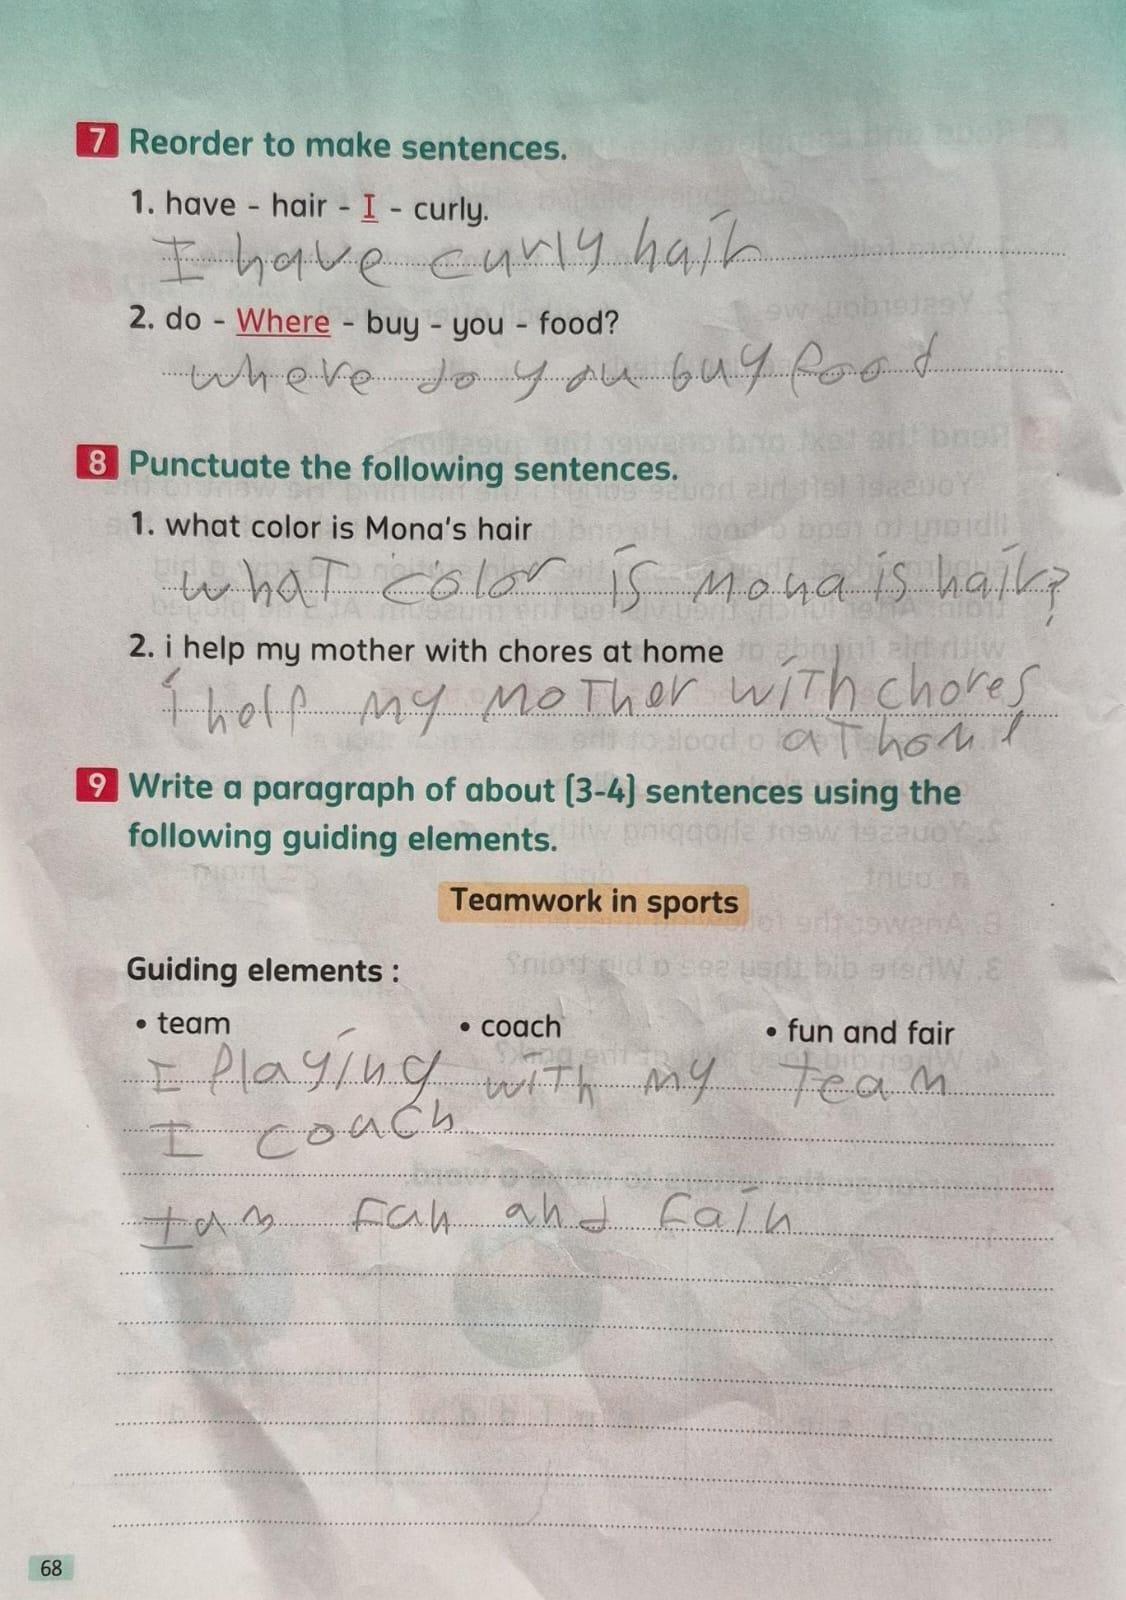 7 Reorder to make sentences.
1. have - hair - I - curly.
I have curly hair
2. do - Where - buy - you - food?
where do you buy food
8 Punctuate the following sentences.
1. what color is Mona's hair
whaT color is Mona is hair?
2. i help my mother with chores at home
i help my moTher wiTh chores
aT home
9 Write a paragraph of about (3-4) sentences using the
following guiding elements.
Teamwork in sports
Guiding elements :
• team • coach • fun and fair
I Playing wiTh my Team
I coach
I am fun and fair
68